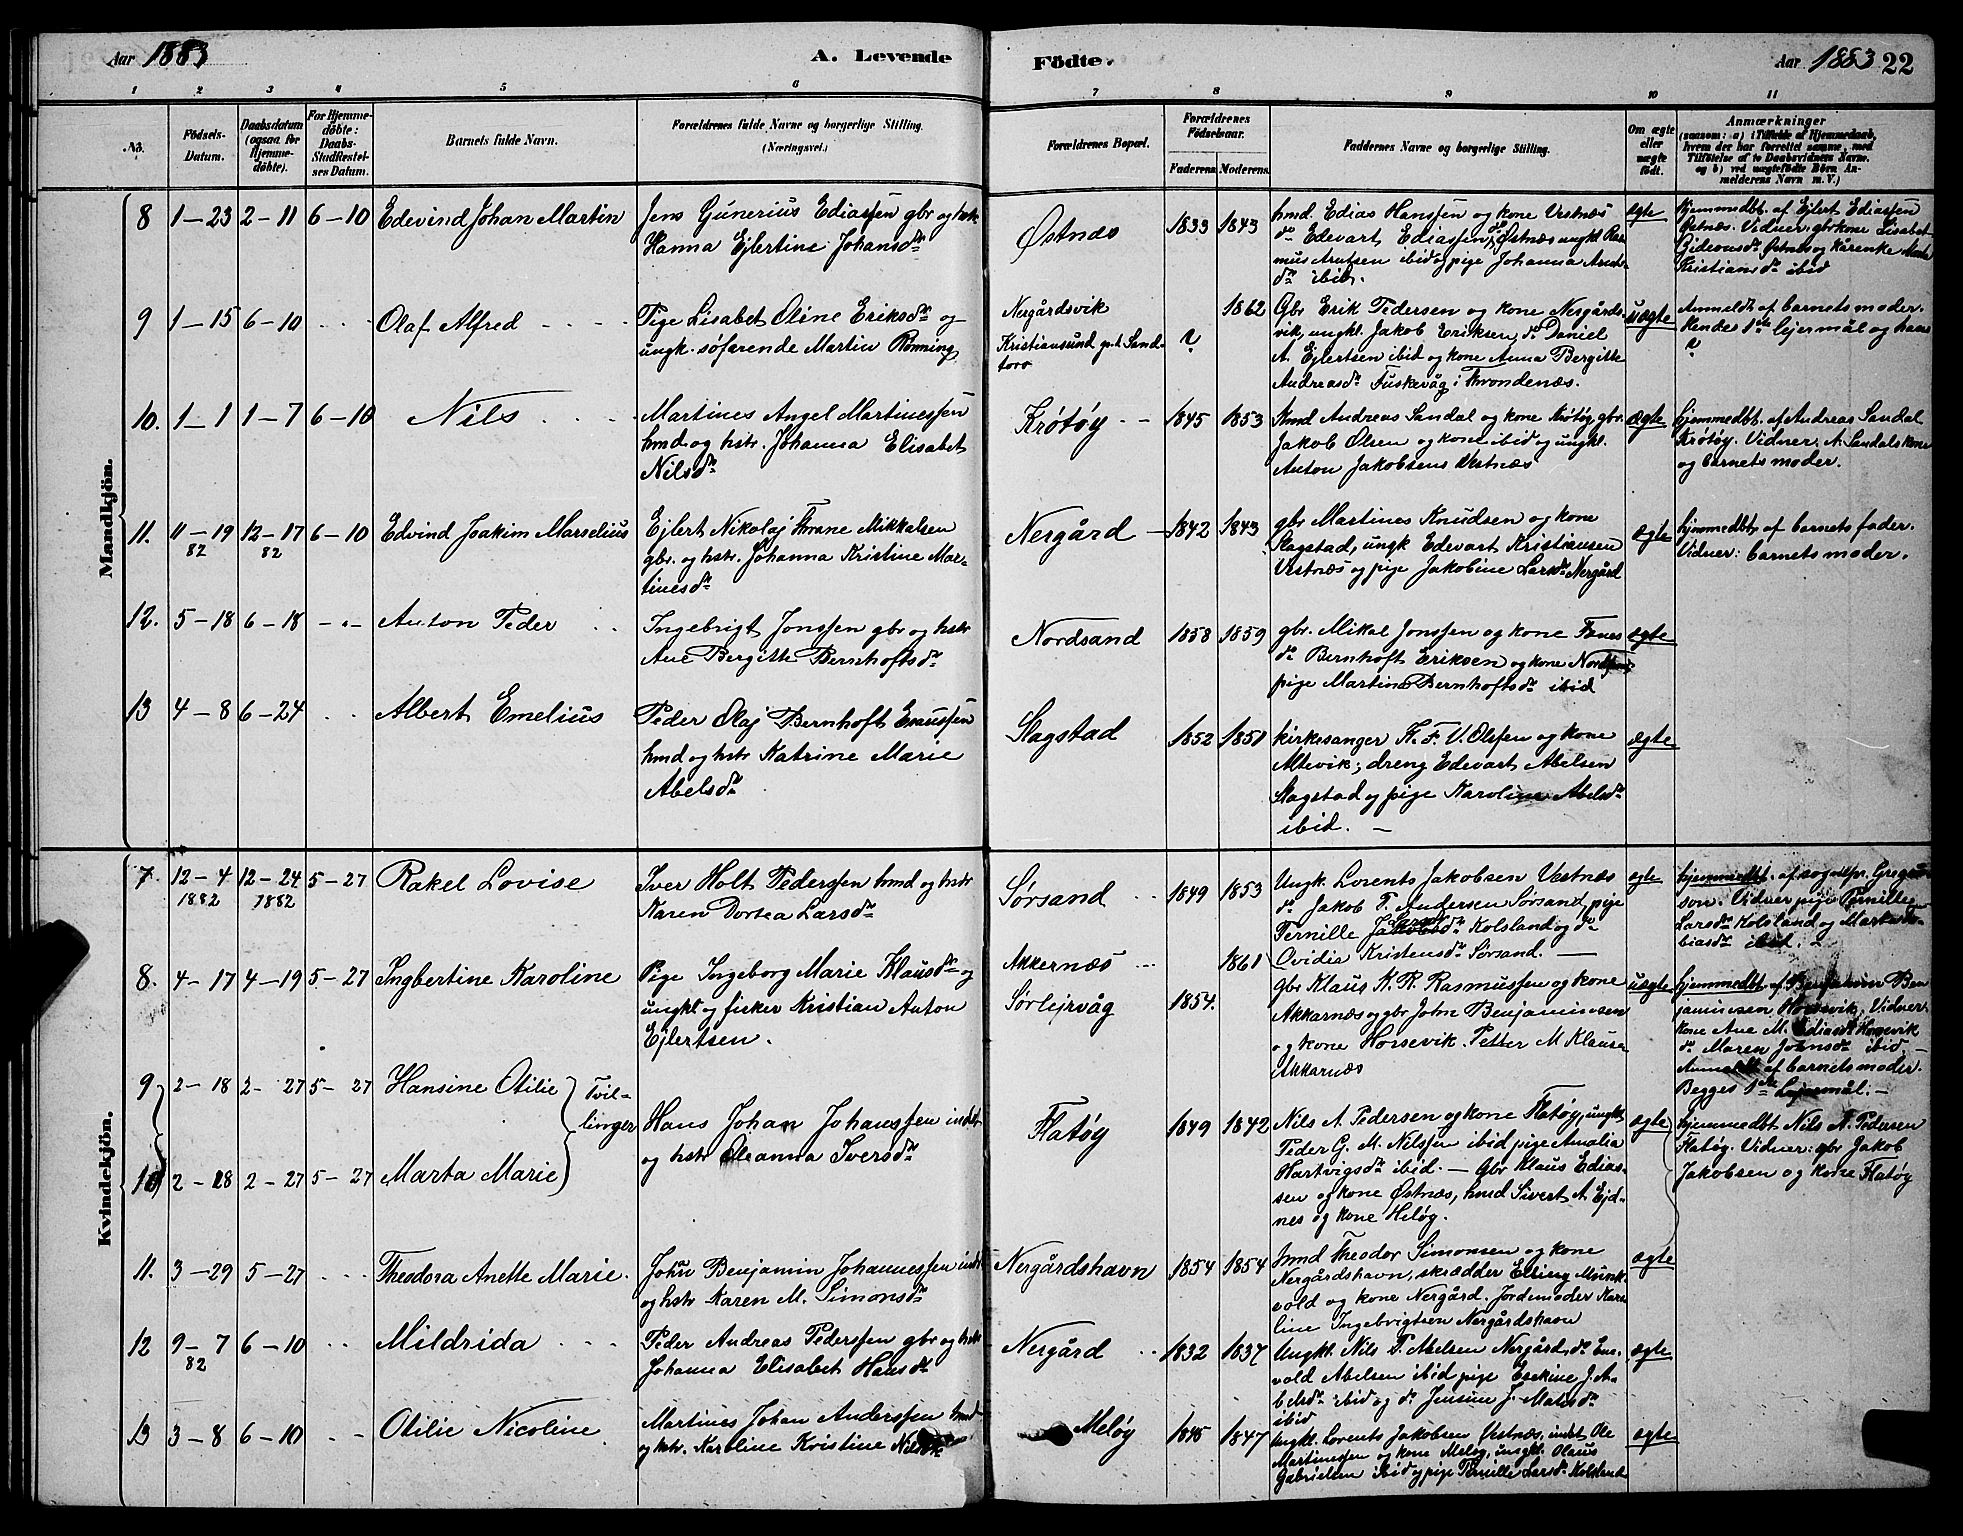 Aar 1883
A. Levende
Födte.
Aar 1883 22
1 2 3 4 5 6 7 8 9 10 11
No.
Födsels-Datum.
Daabsdatum (ogsaa for Hjemme-döbte).
For Hjemme-döbte: Daabs-Stadfæstel-ses Datum.
Barnets fulde Navn.
Forældrenes fulde Navne og borgerlige Stilling.
(Næringsvei.)
Forældrenes Bopæl.
Forældrenes Födselsaar.
Faderens Moderens
Faddernes Navne og borgerlige Stilling.
Om ægte eller uægte födt.
Anmærkninger
(saasom: a) i Tilfælde af Hjemmedaab,
hvem der har forrettet samme, med
Tilföielse af to Daabsvidners Navne.
og b) ved uægtefödte Börn An-
melderens Navn m. V.)
Mandkjön.
8 1-23 2-11 6-10 Edevind Johan Martin
Jens Gunerius Ediassen gbr og hstr
Hanna Ejlertine Johansdr
Østnæs 1833 1843
hmd. Edias Hanssen og kone Vestnæs
dr Edevart Ediassen, Østnæs ungkl Ras-
mus Arntsen ibid og pige Johanna Arnts-
dr ibid.
ægte
Hjemmedbt. af Ejlert Ediassen
Østnæs. Vidner: gbrkone Lisabet
Gideonsdr Østnæs og Karenke
Kristiansdr ibid
9 1-15 6-10 Olaf Alfred
Pige Lisabet Oline Eriksdr og
ungk. søfarende Martin Rønning
Nergårdsvik
Kristiansund p.t. Sand-
torv
? 1862
Gbr Erik Pedersen og kone Nergårds-
vik, ungkl. Jakob Eriksen, dr Daniel
A. Ejlertsen ibid og kone Anna Bergitte
Andreasdr Fuskevåg i Trondenæs.
uægte
Anmeldt af barnets moder.
Hendes 1ste lejermål og hans
?
10. 1-1 1-7 6-10 Nils
Martines Angel Martinessen
hmd og hstr. Johanna Elisabet
Nilsdr
Krøtøy 1845 1853
hmd Andreas Sandal og kone Krøtøy gbr.
Jakob Olsen og kone ibid og ungkl.
Anton Jakobsens Vestnæs
ægte
hjemmedbt. af Andreas Sandal
Krøtøy. Vidner: A. Sandals kone
og barnets moder.
11. 11-19 82 12-17 82 6-10 Edvind Joakim Marselius
Ejlert Nikolaj Thrane Mikkalsen
gbr. og hstr. Johanna Kristine Mar-
tinesdr
Nergård 1842 1843
gbr Martines Knudsen og kone
Slagstad, ungk Edevart Kristiansen
Vestnæs og pige Jakobine Larsdr Nergård
ægte
hjemmedbt. af barnets fader.
Vidner: barnets moder.
12. 5-18 6-18 Anton Peder
Ingebrigt Jonssen gbr og hstr
Ane Bergitte Bernhoftsdr
Nordsand 1858 1859
gbr. Mikal Jonssen og kone Fænes
dr Bernhoft Eriksen og kone
pige Martine Bernhoftsdr ibid
ægte
13 4-8 6-24 Albert Emelius
Peder Olaj Bernhoft
hmd og hstr Katrine Marie
Abelsdr
Slagstad 1852 1851
kirkesanger K. F. V. Olssen og kone
Altevik; dreng Edevart Abelsen
Slagstad og pige Karoline Abelsdr
ibid.
ægte
Kvindekjön.
7. 12-4 1882 12-24 1882 5-27 Rakel Lovise
Iver Holt Pederssen hmd og hstr
Karen Dortea Larsdr
Sørsand 1849 1853
Ungk. Lorents Jakobsen Vestnæs
dr Jakob T. Andersen Sørsand, pige
Pernille Larsdr Kolsland og dr
Ovidia Kristensdr Sørsand.
ægte
hjemmedbt. af sognepr. Gregus-
son. Vidner pige Pernille
Larsdr Kolsland og Marta To-
biasdr ibid.
8. 4-17 4-19 5-27 Ingbertine Karoline
Pige Ingeborg Marie Klausdr og
ungkl og fisker Kristian Anton
Ejlertsen.
Akkernæs
Sørlejrvåg
1854. 1861
gbr Klaus K. R. Rasmussen og kone
Akkarnæs og gbr John Benjaminsen
og kone Horsevik. Petter M Klausen
Akkarnæs
uægte
hjemmedbt. af Benjamin Ben-
jaminsen Horsevik, Vidner:
kone Ane M. Ediasdr Horsevik
dr Maren Johnsdr ibid.
Anmeldt af barnets moder.
Begges 1ste Lejermål.
9 2-18 2-27 5-27 Hansine Otilie
Tvil-
linger
10 2-18 2-27 5-27 Marta Marie
Hans Johan Johanssen indst
og hstr Oleanna Iversdr
Flatøy 1849 1842
Nils A. Pedersen og kone Flatøy, ungkl
Peder G. M. Nilssen ibid pige Amalia
Hartvigsdr ibid. — Gbr Klaus Edias-
sen og kone Østnæs, hmd Sivert A. Ejd-
nes og kone Heløy.
ægte
hjemmedbt Nils A. Pedersen
Flatøy. Vidner: gbr Jakob
Jakobsen og kone Flatøy
11. 3-29 5-27 Theodora Anette Marie.
John Benjamin Johannessen indst
og hstr Karen M. Simonsdr
Nergårdshavn 1854 1854
hmd Theodor Simonsen og kone
Nergårdshavn, skrædder Elling Munk-
vold og kone Nergård. Jordmoder Karo-
line Ingebrigtsen Nergårdshavn
ægte
12 9-7 82 6-10 Mildrida
Peder Andreas Pederssen gbr og hstr
Johanna Elisabet Hansdr
Nergård 1832 1837
Ungkl. Nils P. Abelsen Nergård, dr
vold Abelsen ibid pige Eskine J. A-
belsdr ibid og dr Jensine J. Matisdr
ibid
ægte
13 3-8 6-10 Otilie Nicoline
Martines Johan Anderssen hmd
og hstr. Karoline Kristine
Meløy 1845 1847
Ungkl. Lorents Jakobsen Vestnæs, indst Ole
Martinussen og kone Meløy, ungkl. Olaus
Gabrielsen ibid og pige Pernille Larsdr Kolsland
ægte